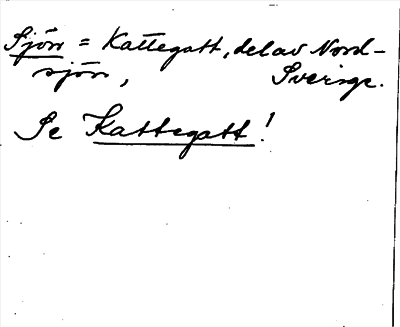 Sjön = Kattegatt, del av Nord-
sjön, Sverige.
Se Kattegatt!